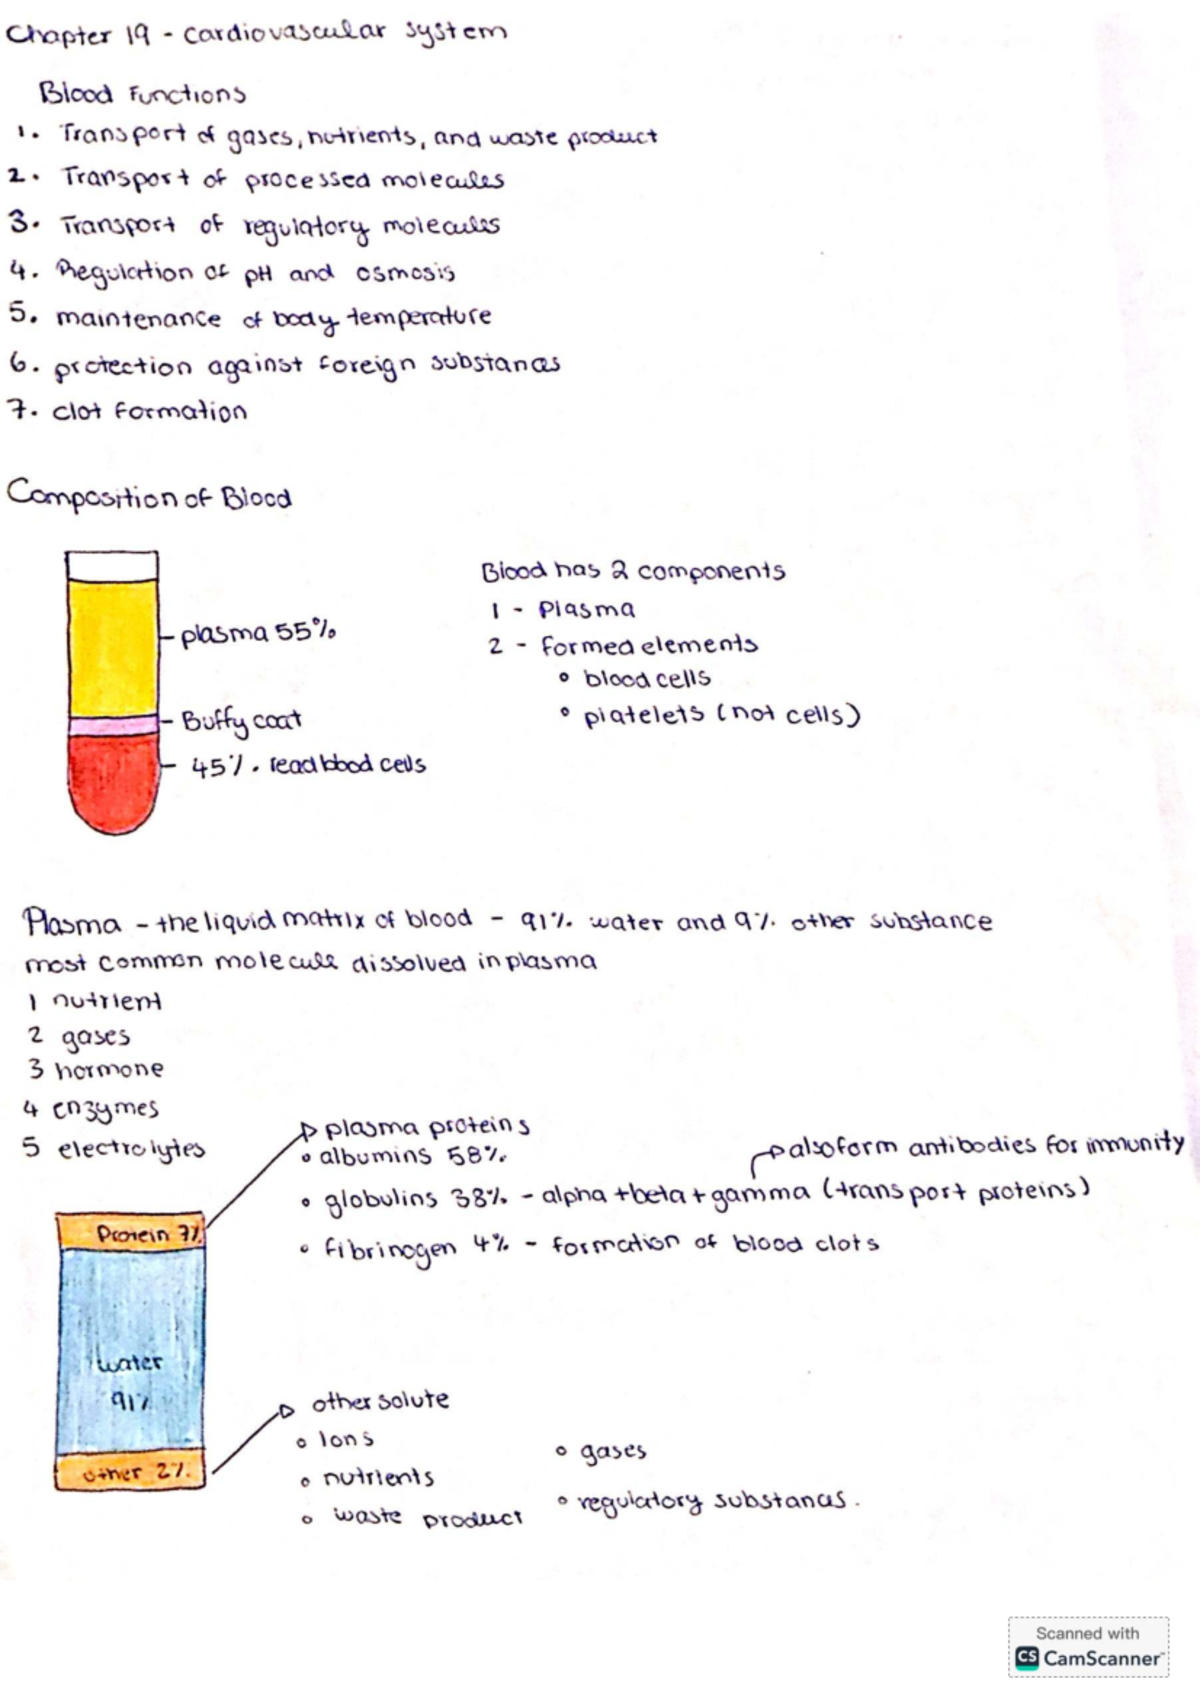 Chapter 19 - cardiovascular system
Blood Functions
1. Transport of gases, nutrients, and waste product
2. Transport of processed molecules
3. Transport of regulatory molecules
4. Regulation of pH and osmosis
5. maintenance of body temperature
6. protection against foreign substances
7. clot formation
Composition of Blood
plasma 55%
Buffy coat
45%. read blood cells
Blood has 2 components
1 - Plasma
2 - formed elements
° blood cells
° platelets (not cells)
Plasma - the liquid matrix of blood - 91% water and 9% other substance
most common molecule dissolved in plasma
1 nutrient
2 gases
3 hormone
4 enzymes
5 electrolytes
plasma proteins
° albumins 58%
also form antibodies for immunity
° globulins 38% - alpha + beta + gamma (transport proteins)
° fibrinogen 4% - formation of blood clots
Protein 7%
water
91%
other 2%
other solute
° Ions
° nutrients
° waste product
° gases
° regulatory substances.
Scanned with
CS CamScanner